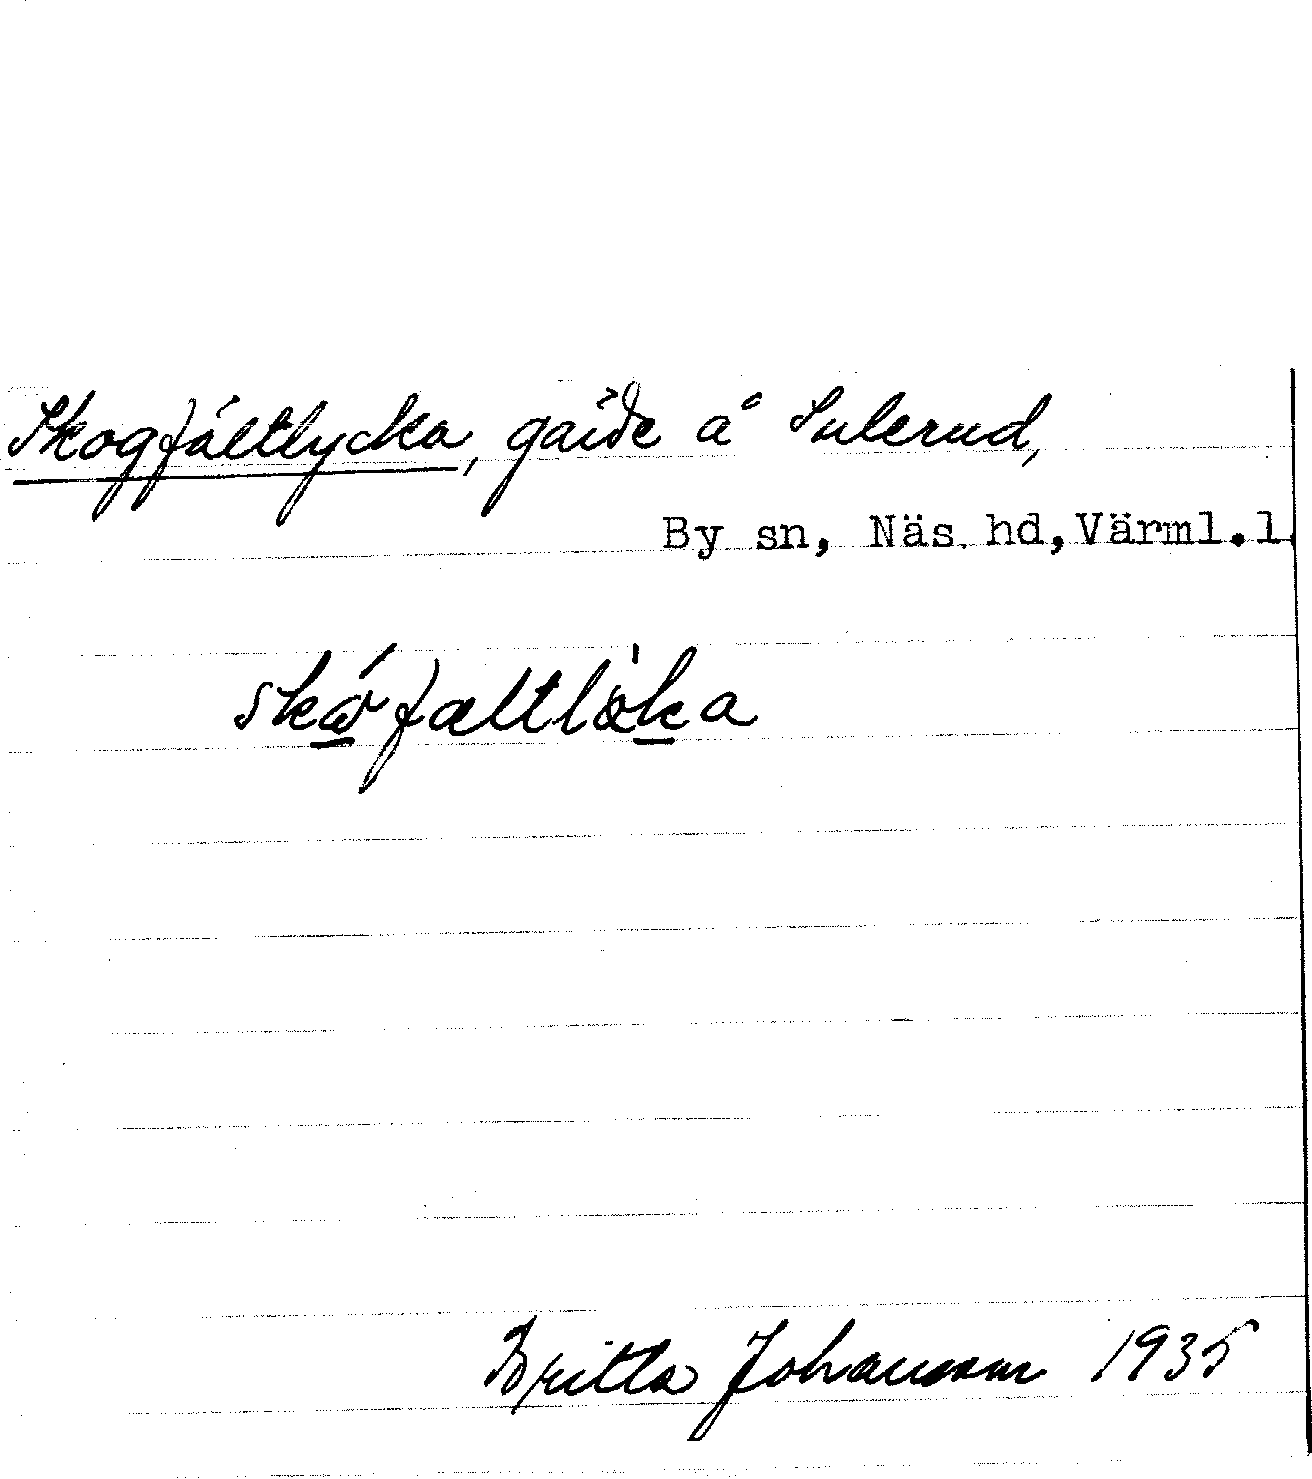 Skogfältlycka, gärde å Sulerud,
By sn, Näs hd,Värml.l.
skófæltlöka
Britta Johansson 1935